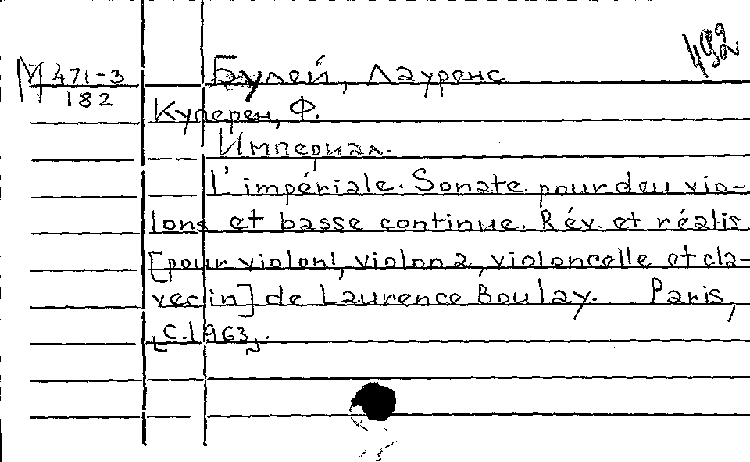 492
М 471-3
182
Булей, Лауренс
Куперен, Ф.
Империал.
L'impériale. Sonate pour deu vio-
lons et basse continue. Rév. et réalis
[pour violon1, violon 2, violoncelle et cla-
vecin] de Laurence Boulay. Paris,
[c.1963].